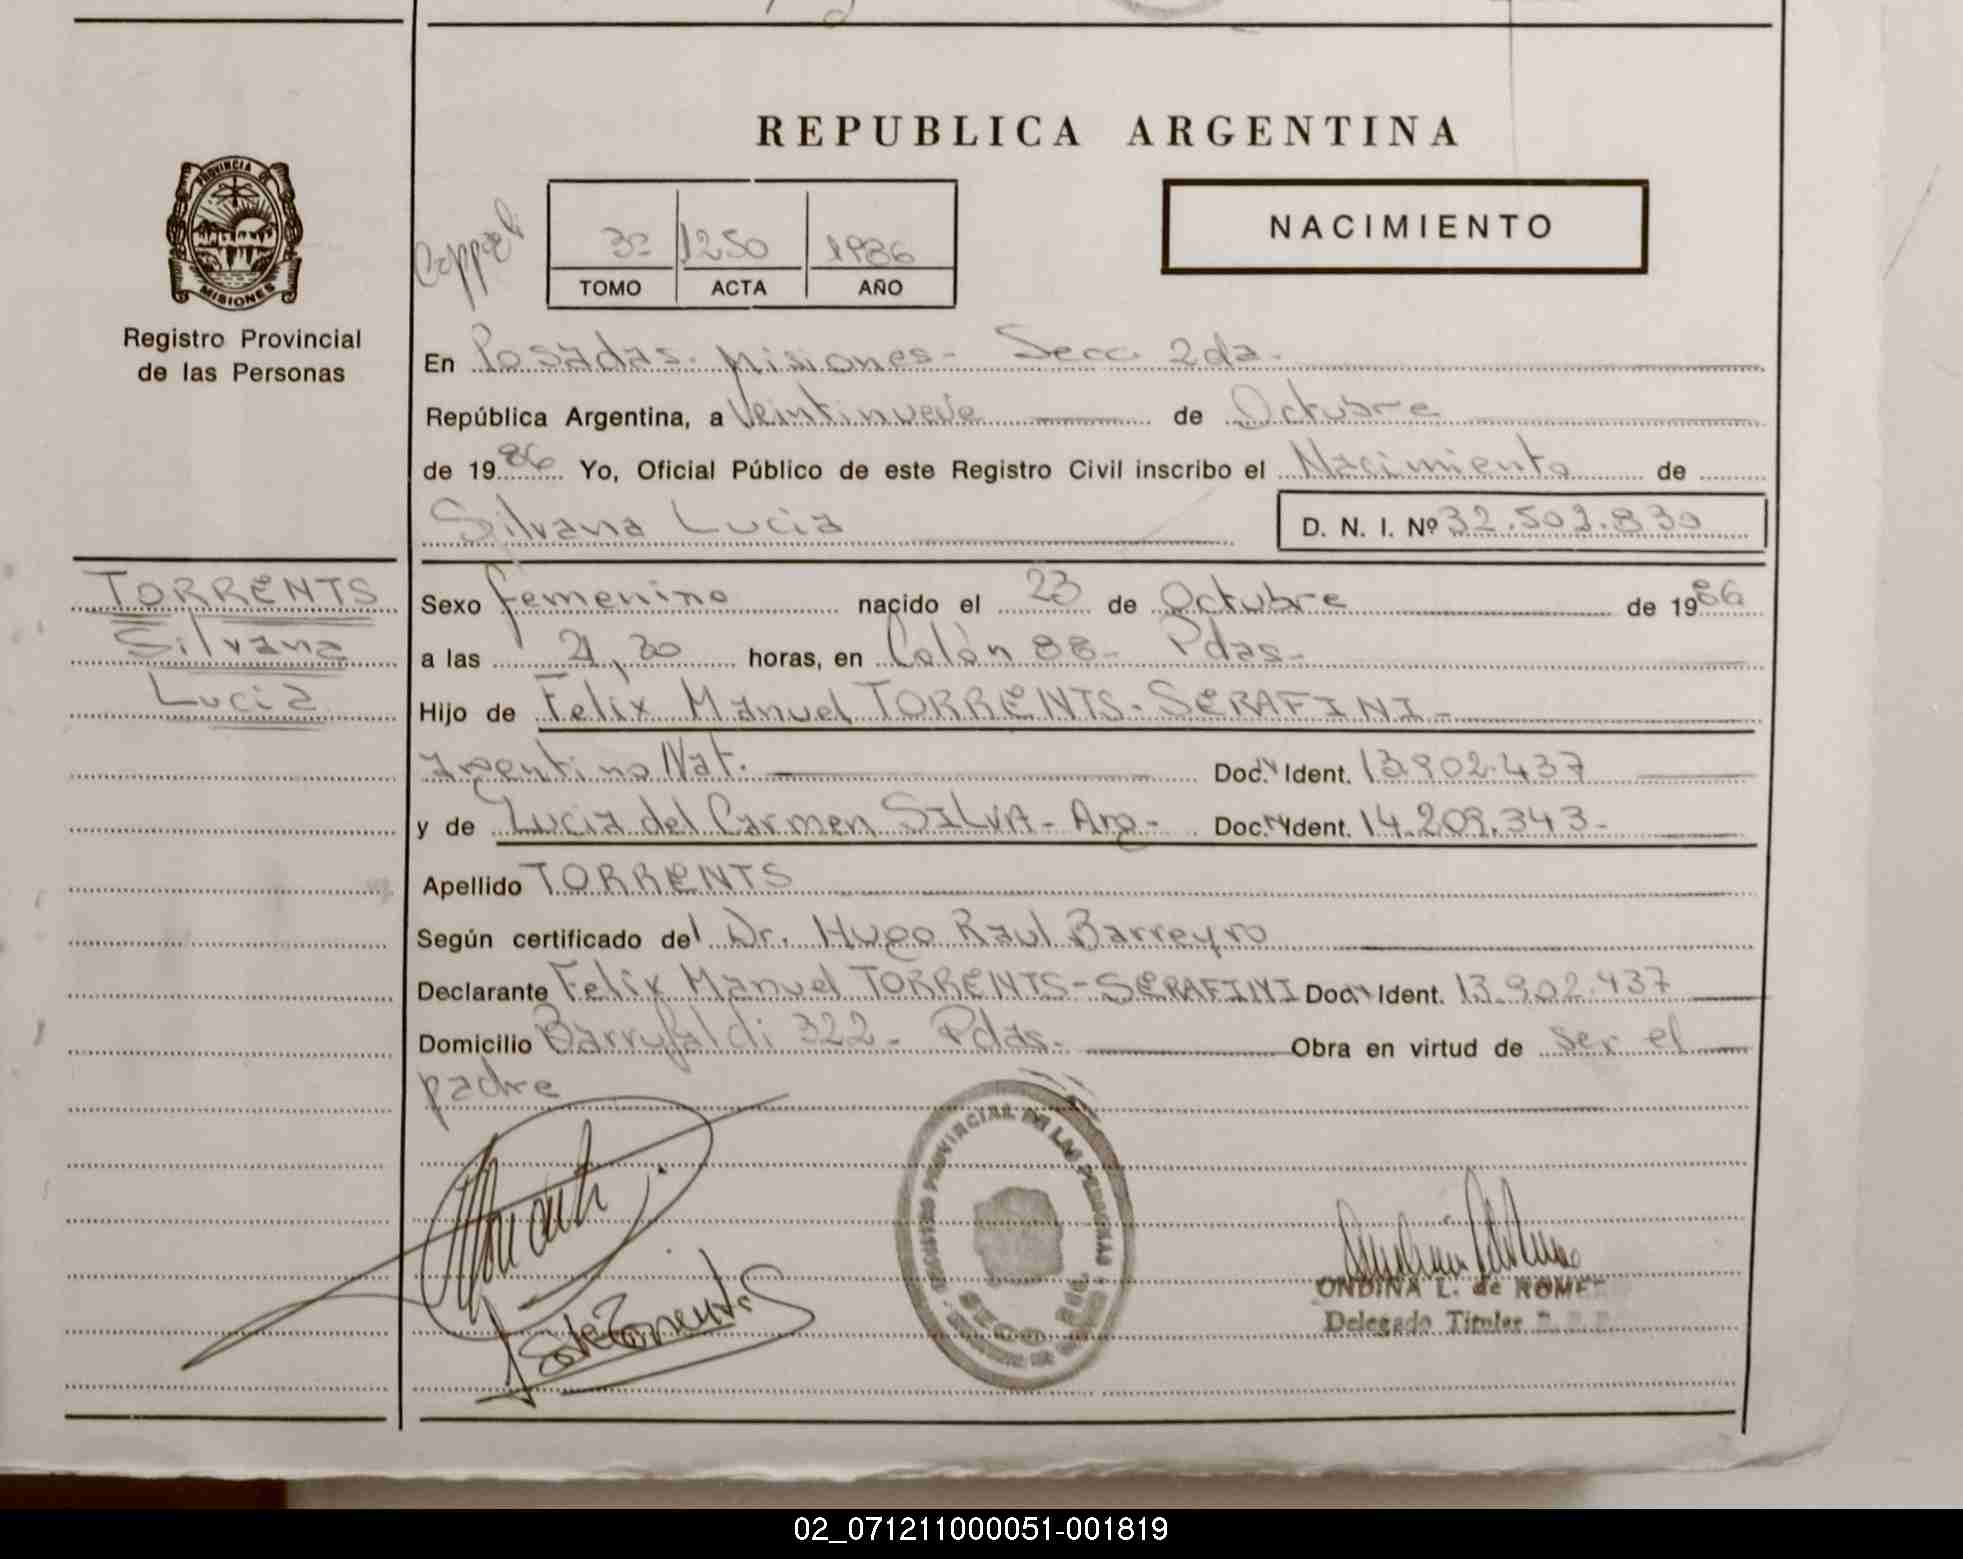 REPUBLICA ARGENTINA
PROVINCIA DE
MISIONES
Registro Provincial
de las Personas
3º 1250 1986
TOMO ACTA AÑO
NACIMIENTO
En Posadas. Misiones- Secc. 2da-
República Argentina, a Veintinueve de Octubre
de 1986 Yo, Oficial Público de este Registro Civil inscribo el Nacimiento de
Silvana Lucia D. N. I. Nº 32.502.830
TORRENTS
Silvana
Lucia
Sexo femenino nacido el 23 de Octubre de 1986
a las 21,30 horas, en Colón 88- Pdas-
Hijo de Felix Manuel TORRENTS-SERAFINI-
argentino Nat. Doc. Ident. 13.902.437
y de Lucia del Carmen SILVA- Arg- Doc. Ident. 14.209.343-
Apellido TORRENTS
Según certificado del Dr. Hugo Raul Barreyro
Declarante Felix Manuel TORRENTS-SERAFINI Doc. Ident. 13.902.437
Domicilio 322- Pdas. Obra en virtud de ser el
padre
REGISTRO PROVINCIAL DE LAS PERSONAS
SECC
ONDINA L. de ROME
Delegado Titular
02_071211000051-001819